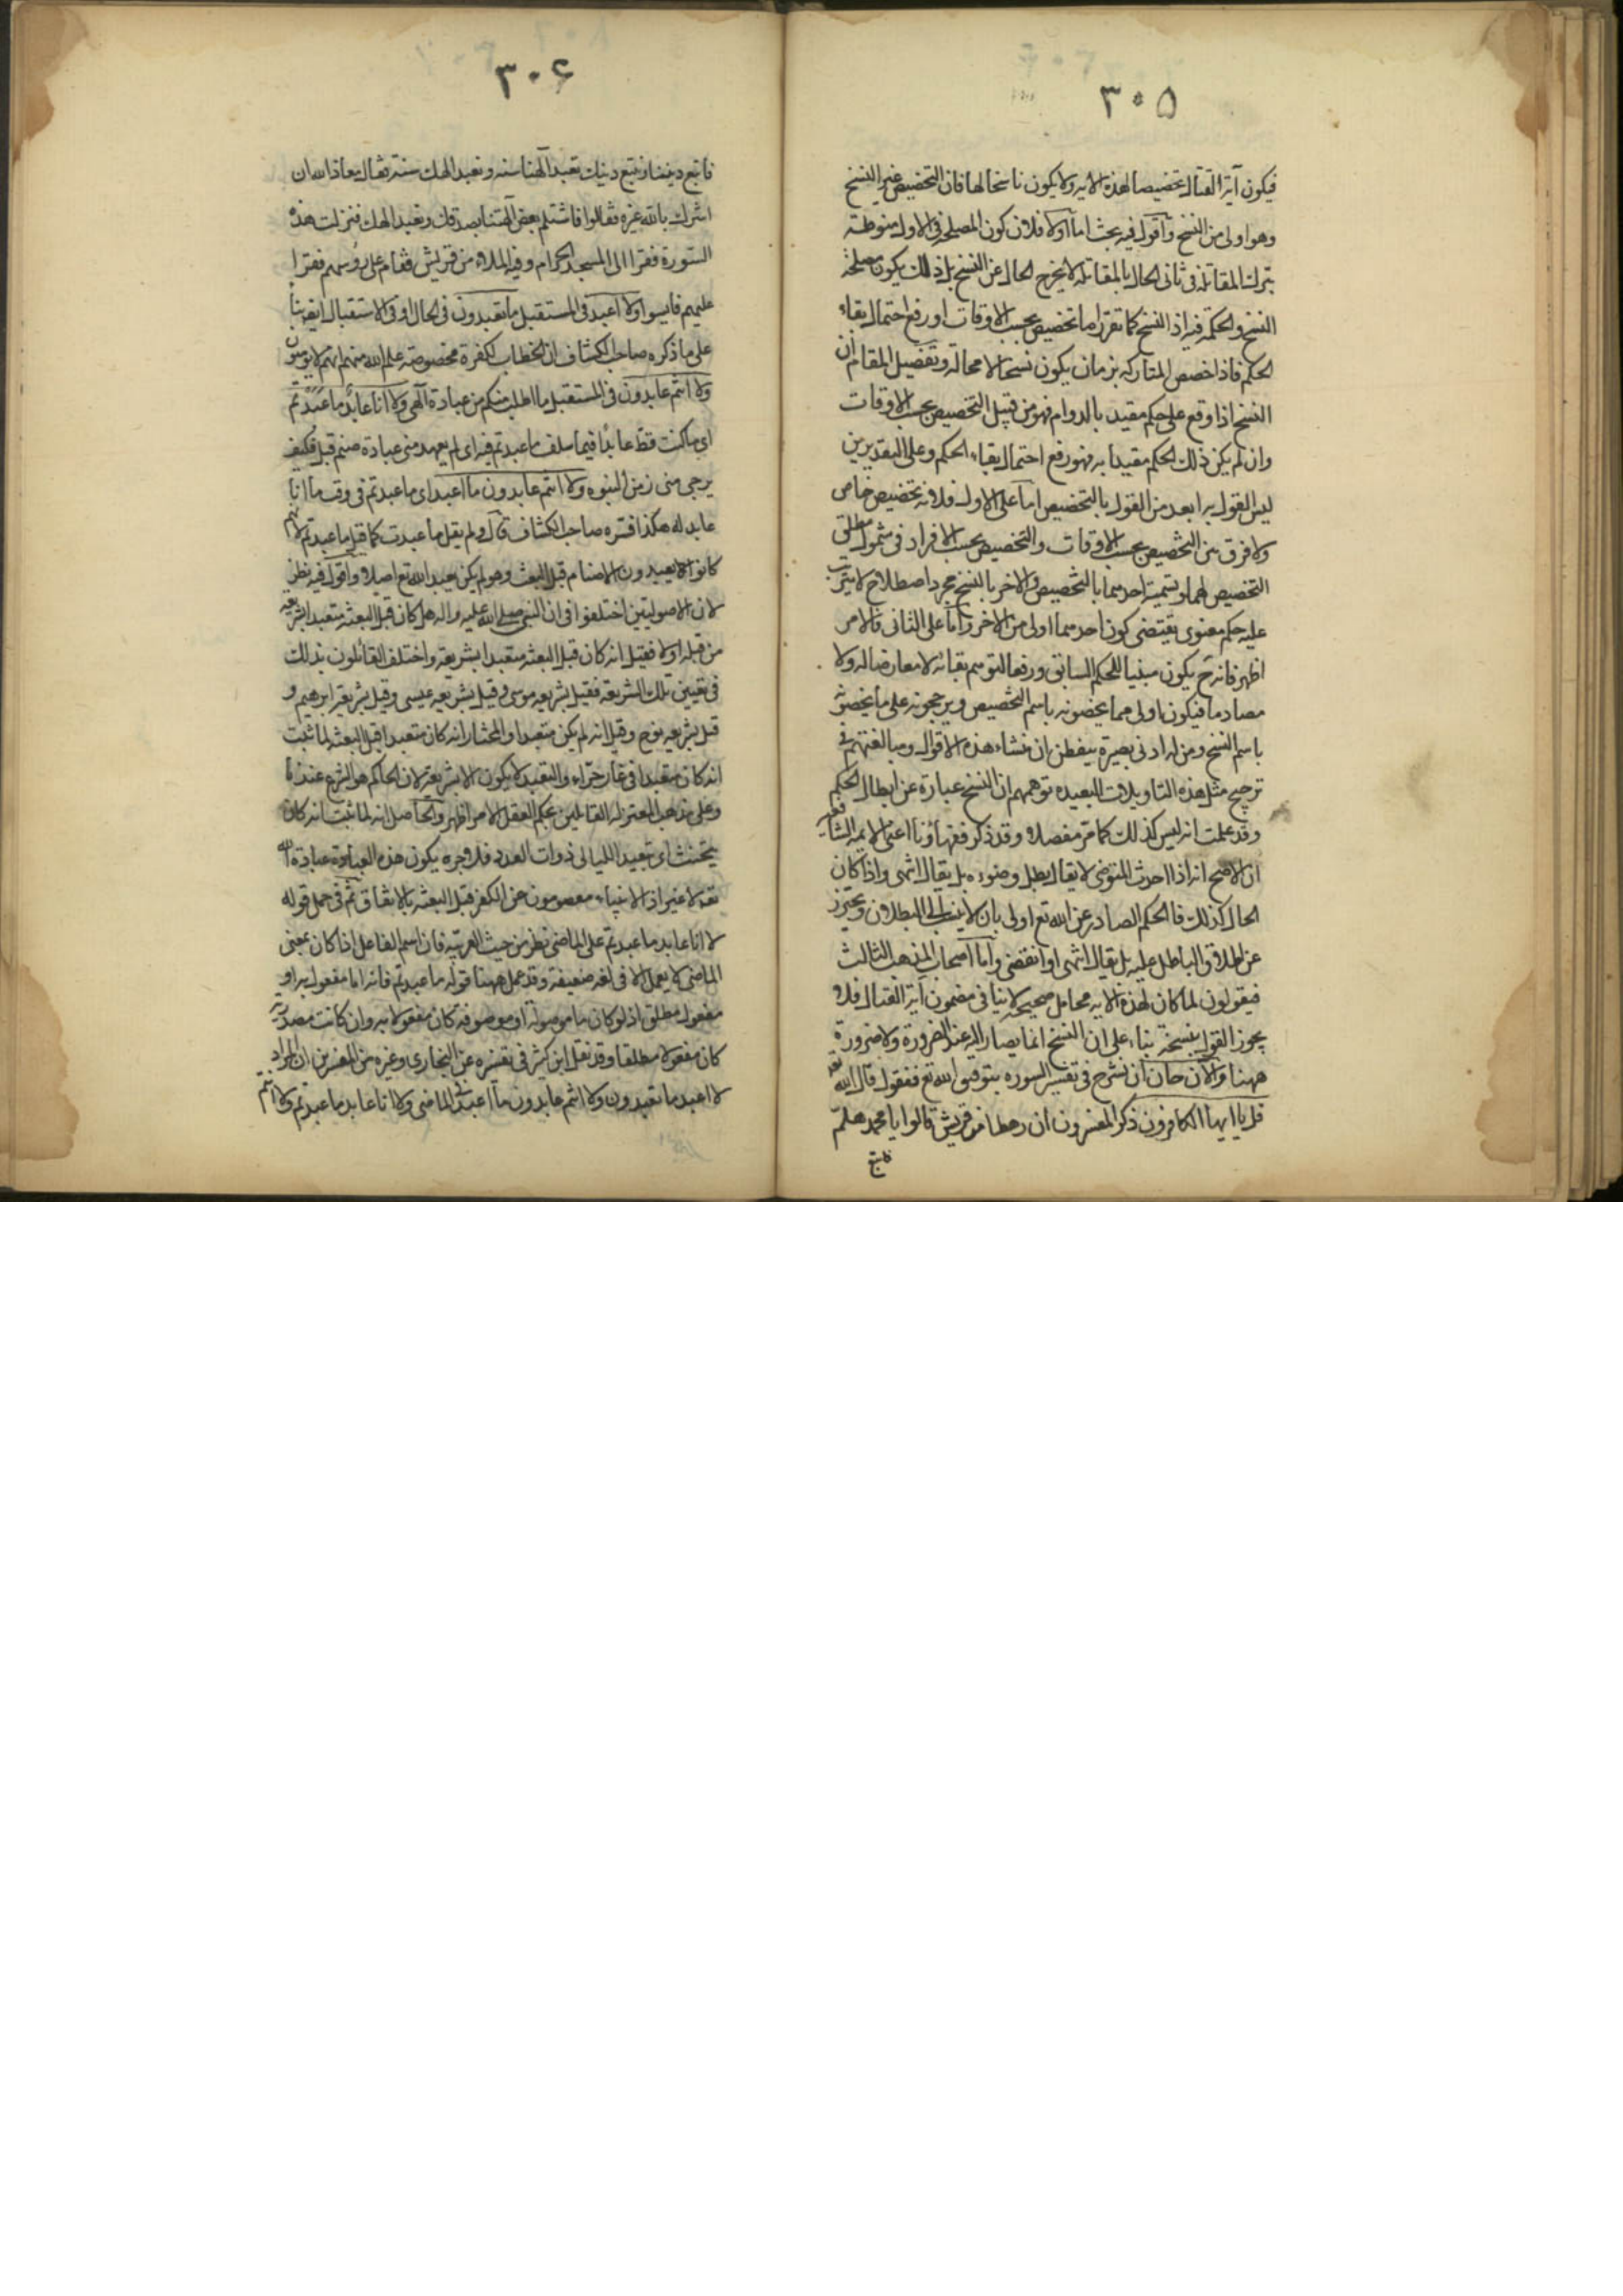 ٣٠٥
فيكون آية القتال تخصيصا لهذه الايه ولا يكون ناسخا لها فان التخصيص غير النسخ
وهو اولى من النسخ وأقول فيه بحث اما اولا فلان كون المصلحة فى الاول منوطة
بترك المقاتلة فى ثانى الحال بالمقاتلة لا يخرج الحال عن النسخ بل ذلك يكون مصلحة
النسخ والحكمة فيه اذ النسخ كما تقرر اما تخصيص بحسب الاوقات او رفع احتمال بقاء
الحكم فاذا خصص المتاركه بزمان يكون نسخا لا محالة وتفصيل المقام ان
النسخ اذا وقع على حكم مقيد بالدوام فهو من قبيل التخصيص بحسب الاوقات
وان لم يكن ذلك الحكم مقيدا به فهو رفع احتمال بقاء الحكم وعلى التقديرين
ليس القول به ابعد من القول بالتخصيص اما على الاول فلانه تخصيص خاص
ولا فرق بين التخصيص بحسب الاوقات والتخصيص بحسب الافراد فى شمول مطلق
التخصيص لهما وتسمية احدهما بالتخصيص والاخر بالنسخ مجرد اصطلاح لا يترتب
عليه حكم معنوى يقتضى كون احدهما اولى من الاخر واما على الثانى فالامر
اظهر فانه ح يكون مبنيا للحكم السابق ورفعا لتوهم بقائه لا معارضا له ولا
مصادما فيكون اولى مما يخصونه باسم التخصيص ويرجحونه على ما يخصونه
باسم النسخ ومن له ادنى بصيرة يتفطن ان منشاء هذه الاقوال ومبالغتهم فى
ترجيح مثل هذه التاويلات البعيده توهمهم ان النسخ عبارة عن ابطال الحكم
وقد علمت انه ليس كذلك كما مر مفصلا وقد ذكر فقهاؤنا اعنى الايمه الشافعيه
ان الاصح انه اذا احدث المتوضى لا يقال بطل وضوءه بل يقال انتهى واذا كان
الحال كذلك فالحكم الصادر عن الله تع اولى بان لا ينسب الى البطلان ويحترز
عن اطلاق الباطل عليه بل يقال انتهى او انقضى واما اصحاب المذهب الثالث
فيقولون لما كان لهذه الايه محامل صحيحة لا ينافى مضمون آية القتال فلا
يجوز القول بنسخه بناء على ان النسخ انما يصار اليه عند الضرورة ولا ضرورة
ههنا والآن حان ان نشرح فى تفسير السوره بتوفيق الله تع فنقول قال الله تعه
قل يا ايها الكافرون ذكر المفسرون ان رهطا من قريش قالوا يا محمد هلم
فاتبع
٣٠۶
فاتبع ديننا ونتبع دينك تعبد آلهتنا سنه ونعبد الهك سنة فقال معاذ الله ان
اشرك بالله غيره فقالوا فاستلم بعض آلهتنا نصدقك ونعبد الهك فنزلت هذه
السورة فغدا الى المسجد الحرام وفيه الملاء من قريش فقام على رؤسهم فقرا
عليهم فايسوا ولا اعبد فى المستقبل ما تعبدون فى الحال او فى الاستقبال ايضا بناء
على ما ذكره صاحب الكشاف ان الخطاب لكفرة مخصوصة علم الله منهم انهم لا يومنون
ولا انتم عابدون فى المستقبل ما اطلب منكم من عبادة الهى ولا انا عابد ما عبدتم
اى ما كنت قط عابدا فيما سلف ما عبدتم فيه اى لم يعهد منى عبادة صنم قبل فكيف
يرجى منى زمن النبوه ولا انتم عابدون ما اعبد اى ما عبدتم فى وقت ما انا
عابد له هكذا فسره صاحب الكشاف قال ولم يقل ما عبدت كما قيل ما عبدتم لانهم
كانوا يعبدون الاصنام قبل البعث وهو لم يكن يعبد الله تع اصلا واقول فيه نظر
لان الاصوليين اختلفوا فى ان النبى صلى الله عليه واله هل كان قبل البعثه متعبدا بشريعه
من قبله او لا فقيل انه كان قبل البعثه متعبدا بشريعه واختلف القائلون بذلك
فى تعيين تلك الشريعه فقيل بشريعه موسى وقيل بشريعه عيسى وقيل بشريعة ابرهيم و
قيل بشريعه نوح وقيل انه لم يكن متعبدا والمختار انه كان متعبدا قبل البعثه لما ثبت
انه كان متعبدا فى غار حراء والتعبد لا يكون الا بشريعة لان الحاكم هو الشرع عندنا
وعلى مذهب المعتزله القائلين بحكم العقل الامر اظهر والحاصل انه لما ثبت انه كان
يتحنث اى تعبد الليالى ذوات العدد فلا جرم يكون هذه العبادة عبادة الله
تعه لا غير اذ الانبياء معصومون عن الكفر قبل البعثه بالاتفاق ثم فى حمل قوله
لا انا عابد ما عبدتم على الماضى نظر من حيث العربيه فان اسم الفاعل اذا كان بمعنى
الماضى لا يعمل الا فى لغه ضعيفة وقد عمل ههنا قوله ما عبدتم فانه اما مفعول به او
مفعول مطلق اذ لو كان ما موصولة او موصوفة كان مفعولا به وان كانت مصدريه
كان مفعولا مطلقا وقد نقل ابن كثير فى تفسيره عن البخارى وغيره من المفسرين ان المراد
لا اعبد ما تعبدون ولا انتم عابدون ما اعبد فى الماضى ولا انا عابد ما عبدتم ولا انتم